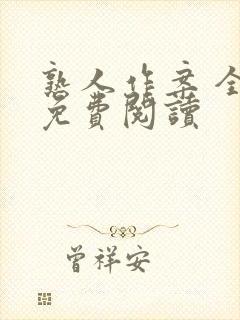 熟人作案全
免費閱讀
曾祥安